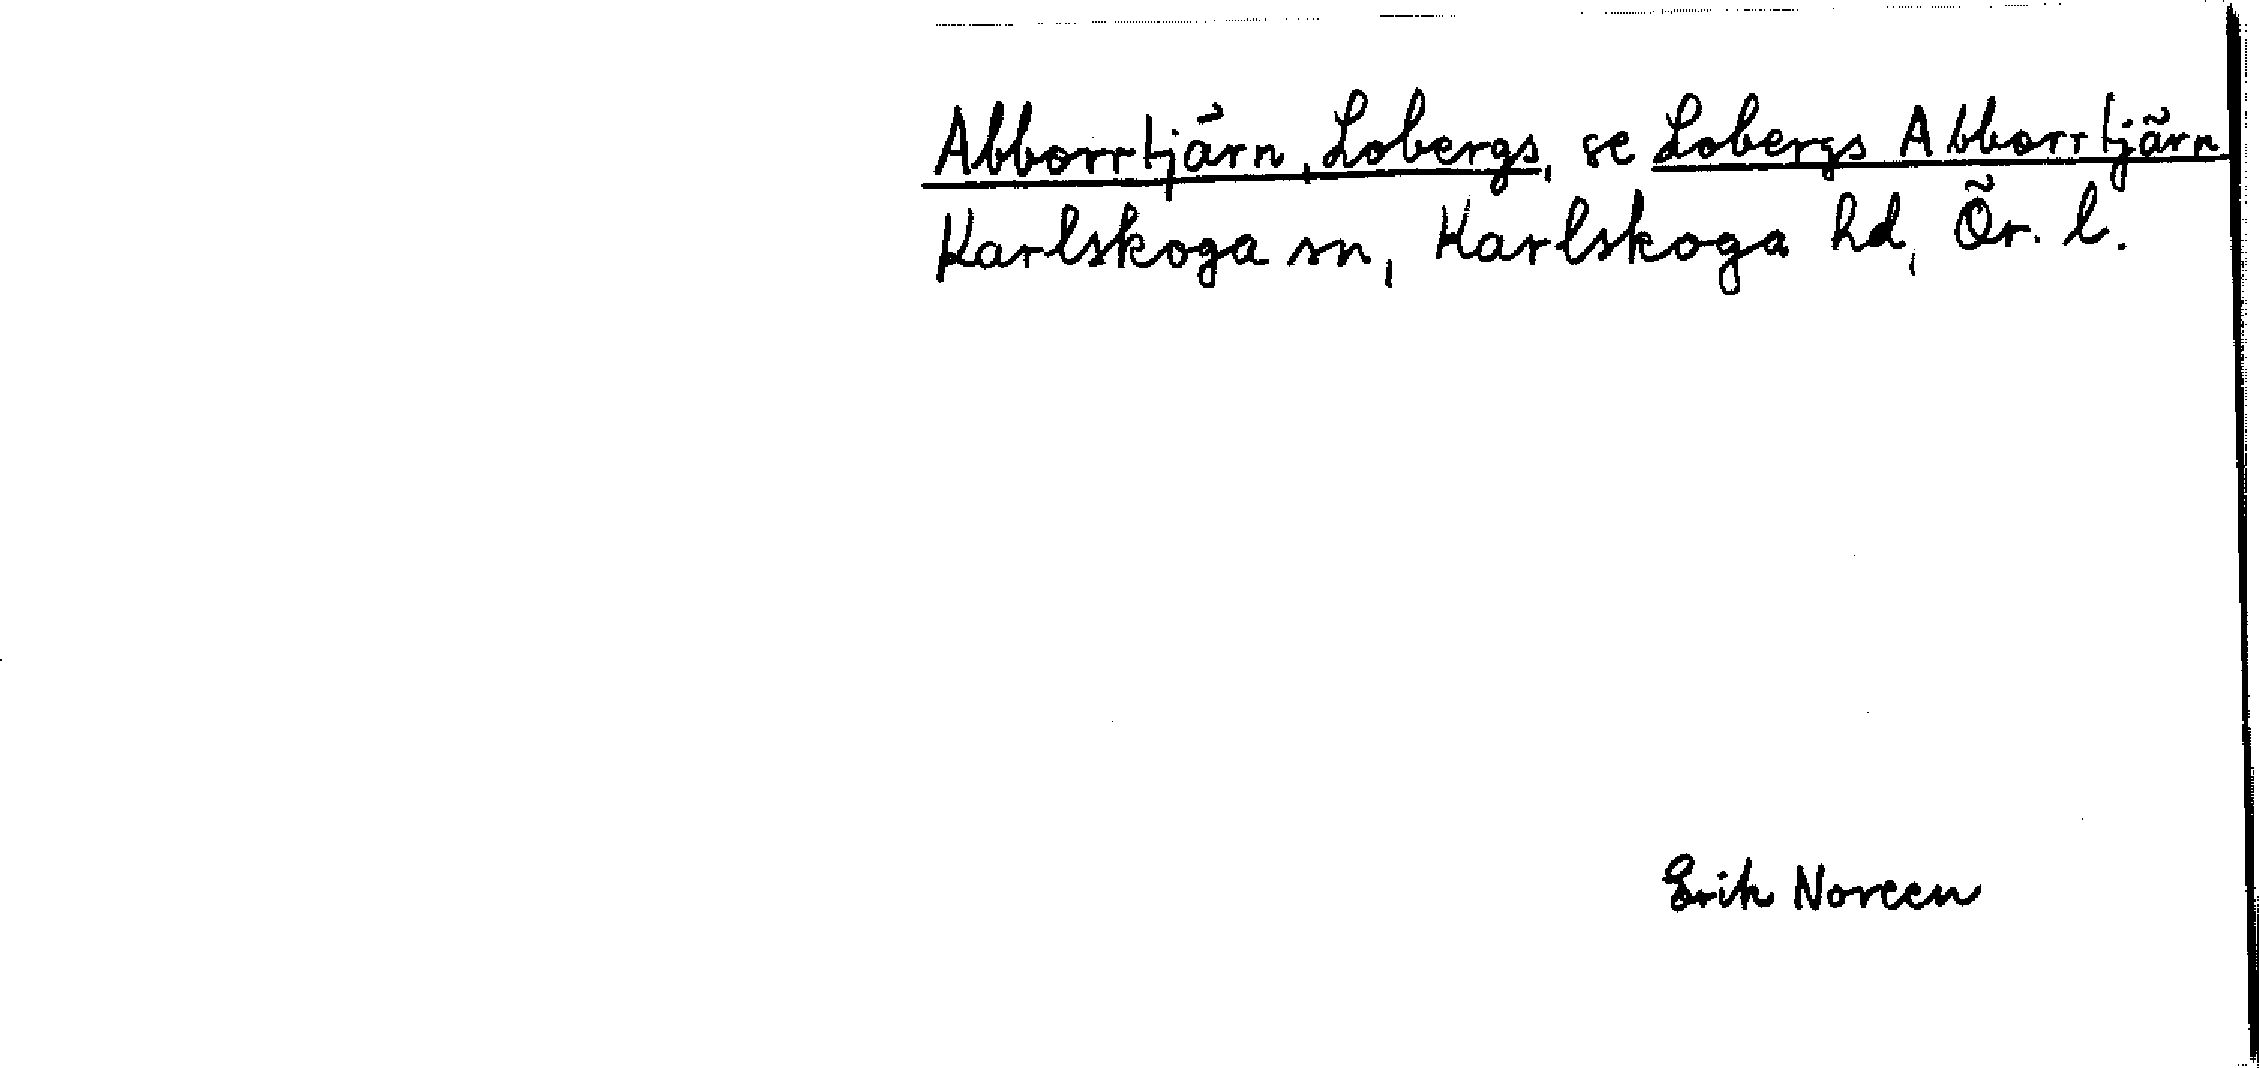 Abborrtjärn, Lobergs, se Lobergs Abborrtjärn
Karlskoga sn, Karlskoga hd, Ör. l.
Erik Noreen